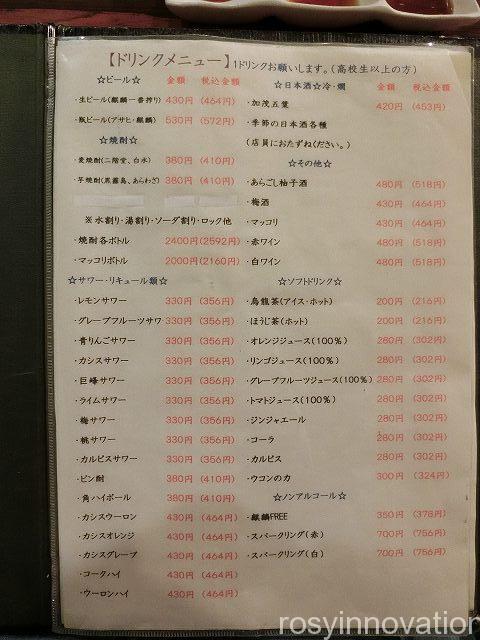 【ドリンクメニュー】1ドリンクお願いします。(高校生以上の方)
☆ビール☆ 金額 税込金額
・生ビール(麒麟一番搾り) 430円 (464円)
・瓶ビール(アサヒ・麒麟) 530円 (572円)
☆焼酎☆
・麦焼酎(二階堂、白水) 380円 (410円)
・芋焼酎(黒霧島、あらわざ) 380円 (410円)
※水割り・湯割り・ソーダ割り・ロック他
・焼酎各ボトル 2400円(2592円)
・マッコリボトル 2000円(2160円)
☆サワー・リキュール類☆
・レモンサワー 330円 (356円)
・グレープフルーツサワー 330円 (356円)
・青りんごサワー 330円 (356円)
・カシスサワー 330円 (356円)
・巨峰サワー 330円 (356円)
・ライムサワー 330円 (356円)
・梅サワー 330円 (356円)
・桃サワー 330円 (356円)
・カルピスサワー 330円 (356円)
・ビン酎 380円 (410円)
・角ハイボール 380円 (410円)
・カシスウーロン 430円 (464円)
・カシスオレンジ 430円 (464円)
・カシスグレープ 430円 (464円)
・コークハイ 430円 (464円)
・ウーロンハイ 430円 (464円)
☆日本酒☆冷・燗 金額 税込金額
・加茂五葉 420円 (453円)
・季節の日本酒各種
(店員におたずねください。)
☆その他☆
・あらごし柚子酒 480円 (518円)
・梅酒 430円 (464円)
・マッコリ 430円 (464円)
・赤ワイン 480円 (518円)
・白ワイン 480円 (518円)
☆ソフトドリンク☆
・烏龍茶(アイス・ホット) 200円 (216円)
・ほうじ茶(ホット) 200円 (216円)
・オレンジジュース(100%) 280円 (302円)
・リンゴジュース(100%) 280円 (302円)
・グレープフルーツジュース(100%) 280円 (302円)
・トマトジュース(100%) 280円 (302円)
・ジンジャエール 280円 (302円)
・コーラ 280円 (302円)
・カルピス 280円 (302円)
・ウコンの力 300円 (324円)
☆ノンアルコール☆
・麒麟FREE 350円 (378円)
・スパークリング(赤) 700円 (756円)
・スパークリング(白) 700円 (756円)
rosyinnovation